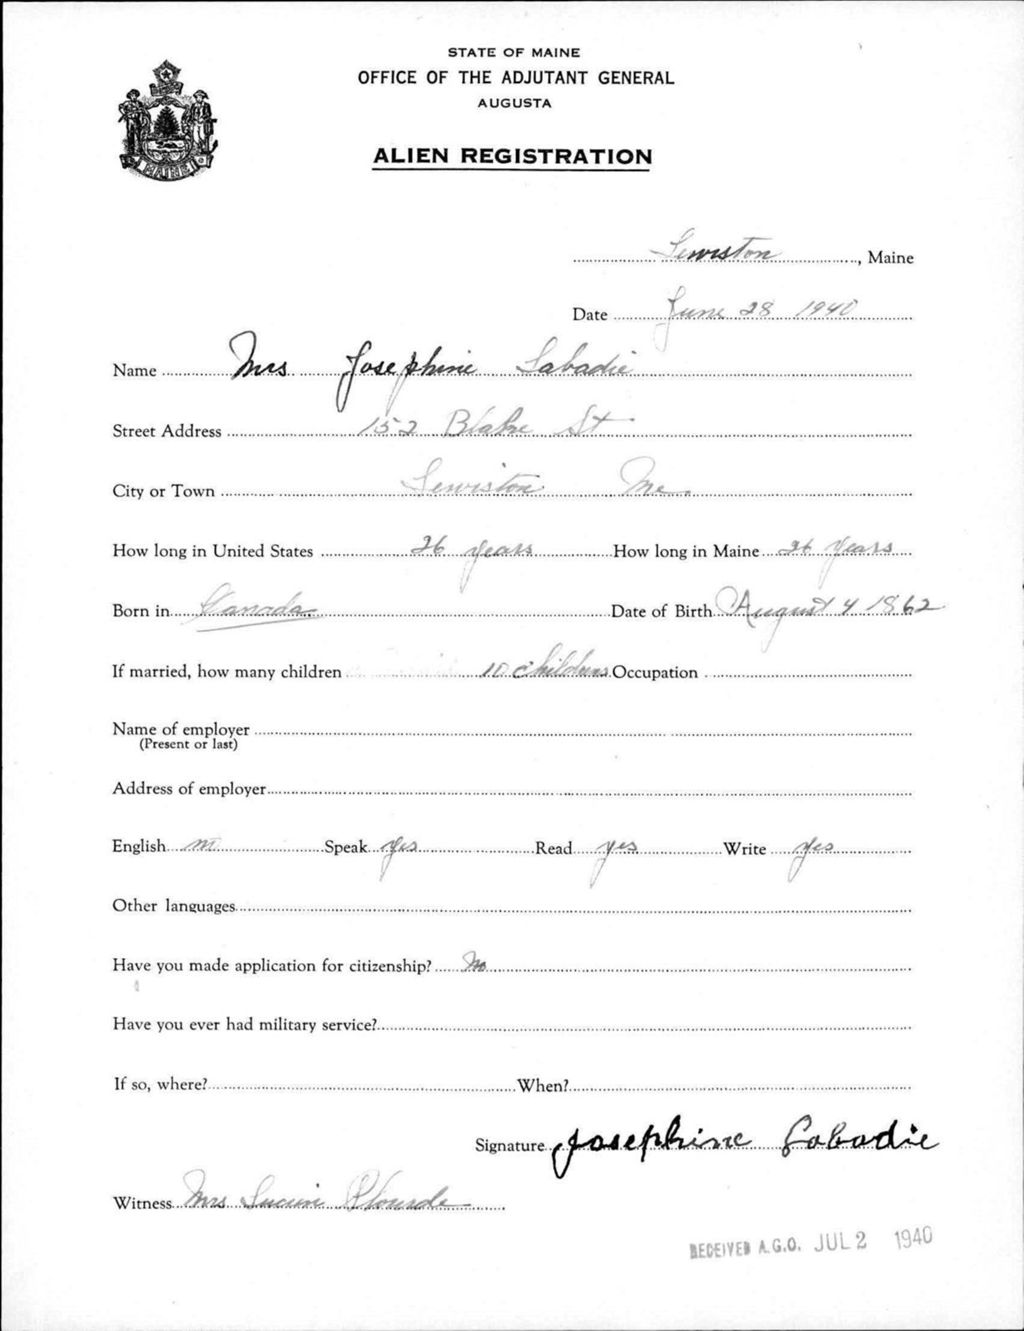 STATE OF MAINE
OFFICE OF THE ADJUTANT GENERAL
AUGUSTA
MAINE
ALIEN REGISTRATION
Lewiston, Maine
Date June 28 1940
Name Mrs Josephine Labadie
Street Address 152 Blake St
City or Town Lewiston Me.
How long in United States 26 years How long in Maine 26 years
Born in Canada Date of Birth August 4 1862
If married, how many children 10 childrens Occupation
Name of employer
(Present or last)
Address of employer
English Speak yes Read yes Write yes
Other languages
Have you made application for citizenship? No
Have you ever had military service?
If so, where? When?
Signature Josephine Labadie
Witness Mrs Plourde
RECEIVED A.G.O. JUL 2 1940